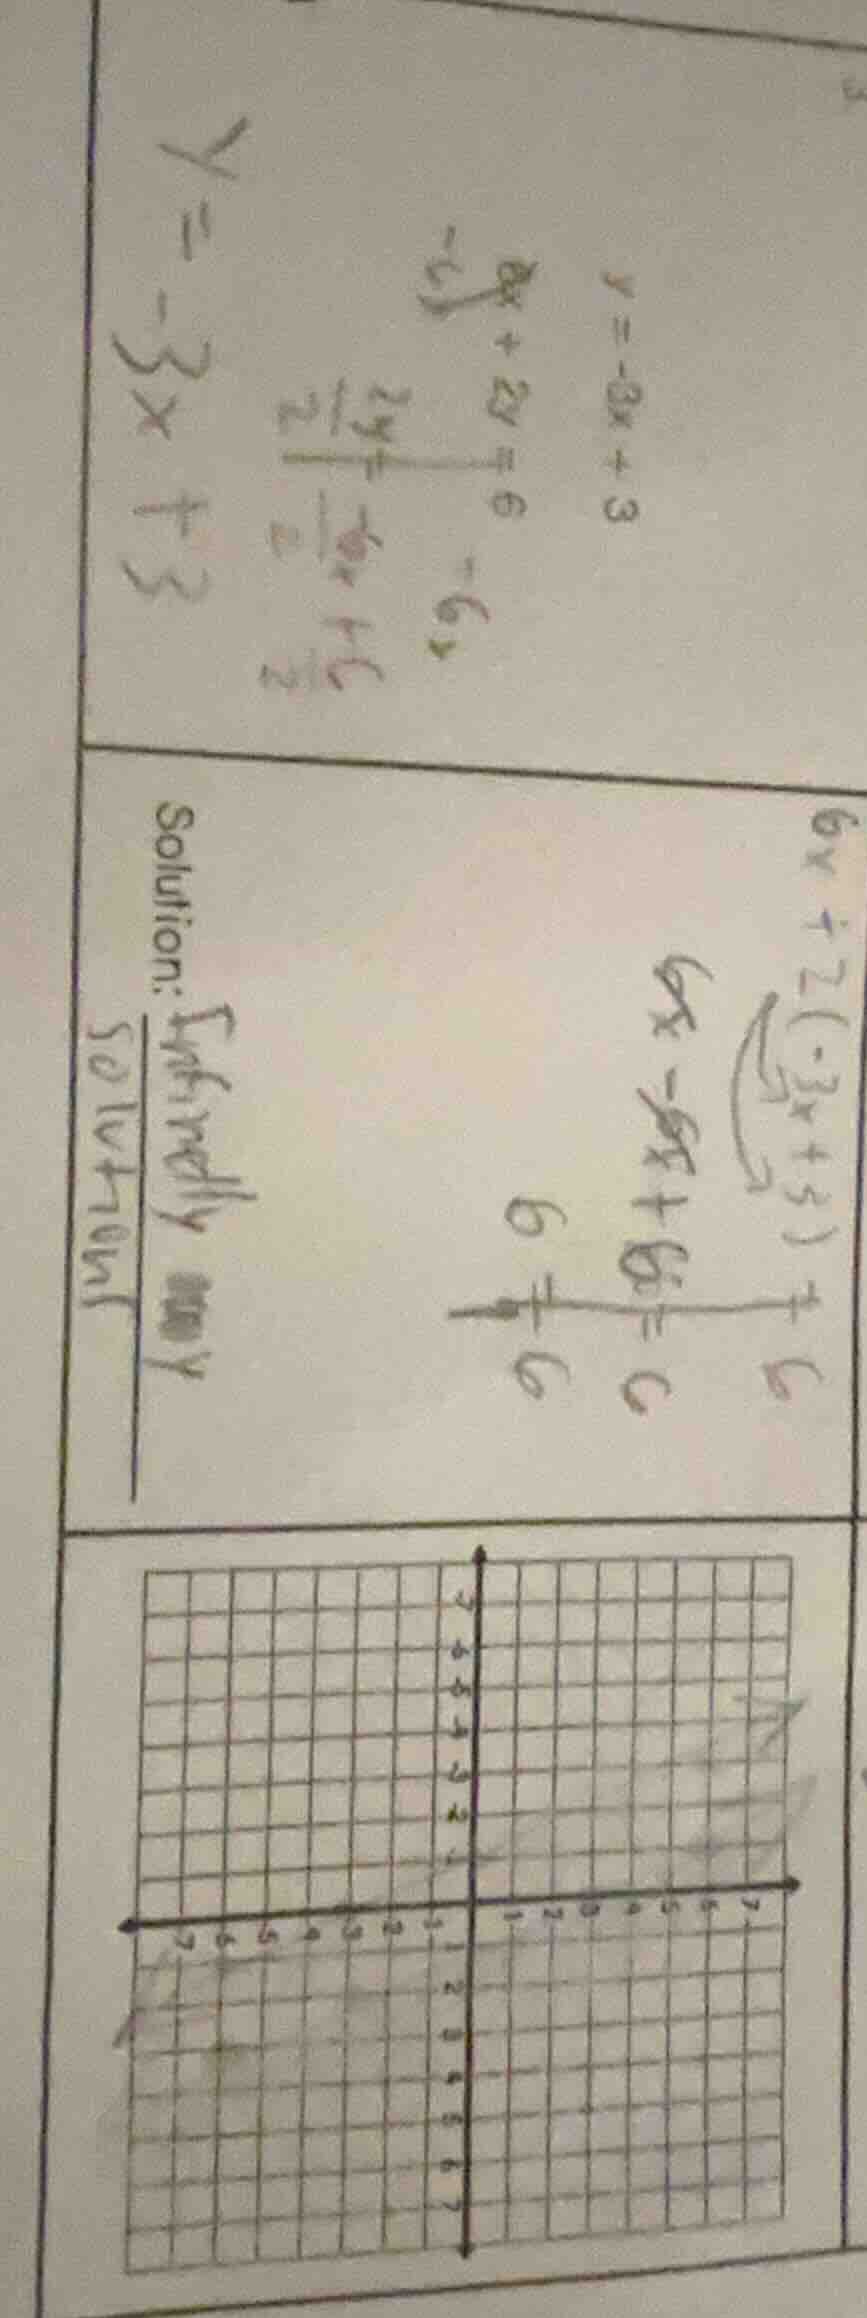 3
y = -3x + 3
6x + 2y = 6
-6x -6x
2y = -6x + 6
2 2 2
y = -3x + 3
6x + 2(-3x + 3) = 6
6x - 6x + 6 = 6
6 = 6
Solution: Infinitlly many
solutions
7 6 5 4 3 2 1
-7 -6 -5 -4 -3 -2 -1
1 2 3 4 5 6 7
-1 -2 -3 -4 -5 -6 -7